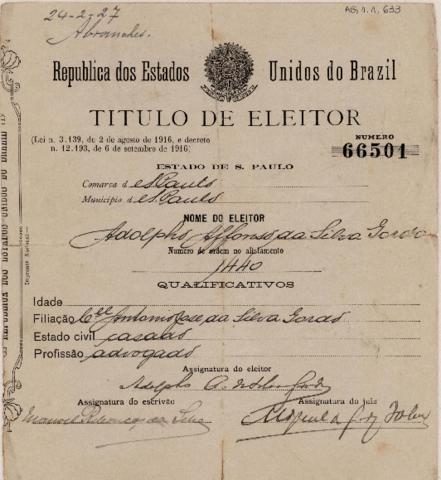 24-2-27
Abranches.
AG.1.1.633
Republica dos Estados Unidos do Brazil
TITULO DE ELEITOR
(Lei n. 3.139, de 2 de agosto de 1916, e decreto
n. 12.193, de 6 de setembro de 1916)
NUMERO
66501
ESTADO DE S. PAULO
Comarca d e S. Paulo
Municipio d e S. Paulo
NOME DO ELEITOR
Adolpho Affonso da Silva Gordo
Numero de ordem no alistamento
1440
QUALIFICATIVOS
Idade
Filiação Cel Antonio José da Silva Gordo
Estado civil casado
Profissão advogado
Assignatura do eleitor
Adolpho A. da Silva Gordo
Assignatura do escrivão
Assignatura do juiz
Manoel da Silva
Imprensa Nacional
REPUBLICA DOS ESTADOS UNIDOS DO BRAZIL